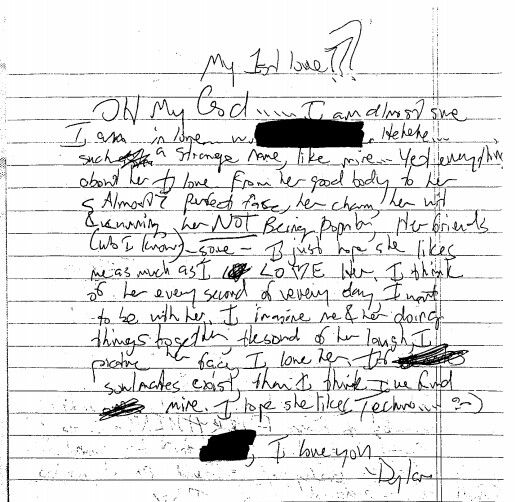 My 1st love???
OH My God..... I am almost sure
I am in love... w. . Hehehe...
such a strange name, like mine... Yet everything
about her I love. From her good body to her
Almost perfect face, her charm, her wit
& cunning, her NOT Being popular, Her friends
(who I know) - some - I just hope she likes
me as much as I LOVE Her. I think
of her every second of every day. I want
to be with her. I imagine me & her doing
things together, the sound of her laugh, I
picture her face, I love her. If
soulmates exist, then I think I've found
mine. I hope she likes Techno.... :-)
, I love you
-Dylan